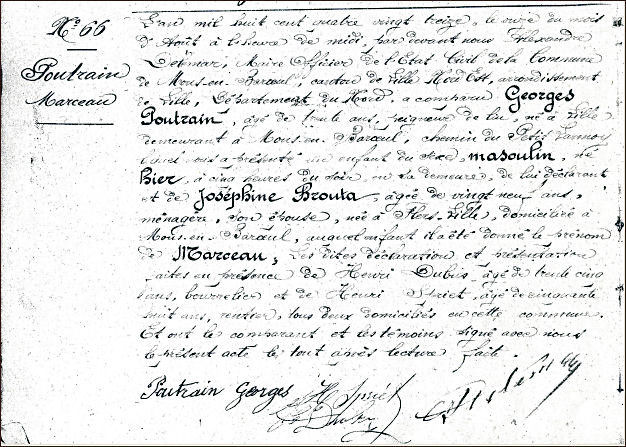 No. 66
Poutrain
Marceau
L'an mil huit cent quatre vingt treize, le onze du mois
d'Août à l'heure de midi, par devant nous Alexandre
Delmar, Maire Officier de l'Etat Civil de la Commune
de Mons-en-Barœul, canton de Lille Nord Est, arrondissement
de Lille, Département du Nord, a comparu Georges
Poutrain, âgé de trente ans, peigneur de lin, né à Lille
demeurant à Mons-en-Barœul, chemin du Petit
lequel nous a présenté un enfant du sexe masculin, né
hier, à cinq heures du soir, en sa demeure, de lui déclarant
et de Joséphine Brouta, âgée de vingt neuf ans,
ménagère, son épouse, née à Flers-Lille, domiciliée à
Mons-en-Barœul, auquel enfant il a été donné le prénom
de Marceau, Les dites déclaration et présentation
faites en présence de Henri Dubus, âgé de trente cinq
ans, bourrelier et de Henri Spriet, âgé de cinquante
huit ans, rentier, tous deux domiciliés en cette commune.
Et ont le comparant et les témoins signé avec nous
le présent acte le tout après lecture faite.
Poutrain Georges H Spriet